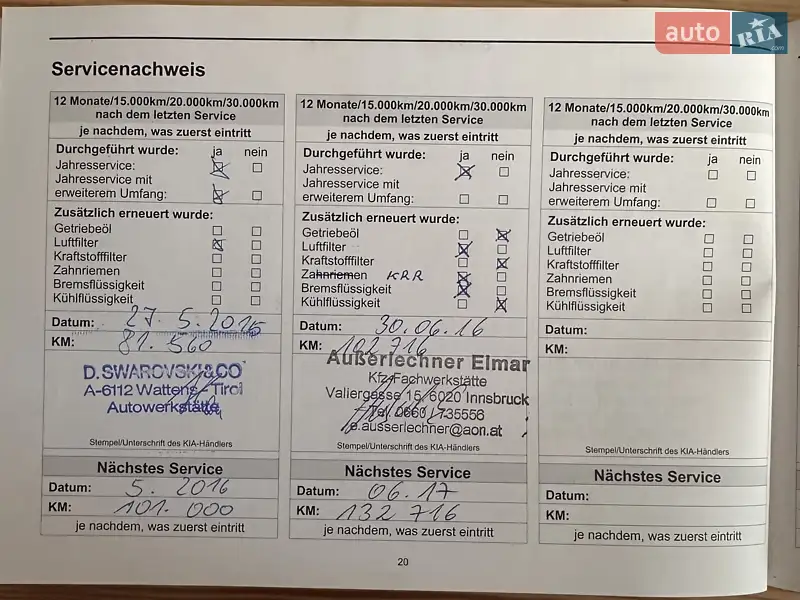 auto RIA.com
Servicenachweis
12 Monate/15.000km/20.000km/30.000km
nach dem letzten Service
je nachdem, was zuerst eintritt
Durchgeführt wurde: ja nein
Jahresservice:
Jahresservice mit
erweiterem Umfang:
Zusätzlich erneuert wurde:
Getriebeöl
Luftfilter
Kraftstofffilter
Zahnriemen
Bremsflüssigkeit
Kühlflüssigkeit
Datum: 27.5.2015
KM: 81.560
D.SWAROVSKI&CO
A-6112 Wattens-Tirol
Autowerkstätte
Stempel/Unterschrift des KIA-Händlers
Nächstes Service
Datum: 5. 2016
KM: 101.000
je nachdem, was zuerst eintritt
12 Monate/15.000km/20.000km/30.000km
nach dem letzten Service
je nachdem, was zuerst eintritt
Durchgeführt wurde: ja nein
Jahresservice:
Jahresservice mit
erweiterem Umfang:
Zusätzlich erneuert wurde:
Getriebeöl
Luftfilter
Kraftstofffilter
Zahnriemen KRR
Bremsflüssigkeit
Kühlflüssigkeit
Datum: 30.06.16
KM: 102 716
Außerlechner Elmar
Kfz-Fachwerkstätte
Valiergasse 15, 6020 Innsbruck
Tel. 0660 / 735556
e.ausserlechner@aon.at
Stempel/Unterschrift des KIA-Händlers
Nächstes Service
Datum: 06.17
KM: 132 716
je nachdem, was zuerst eintritt
12 Monate/15.000km/20.000km/30.000km
nach dem letzten Service
je nachdem, was zuerst eintritt
Durchgeführt wurde: ja nein
Jahresservice:
Jahresservice mit
erweiterem Umfang:
Zusätzlich erneuert wurde:
Getriebeöl
Luftfilter
Kraftstofffilter
Zahnriemen
Bremsflüssigkeit
Kühlflüssigkeit
Datum:
KM:
Stempel/Unterschrift des KIA-Händlers
Nächstes Service
Datum:
KM:
je nachdem, was zuerst eintritt
20